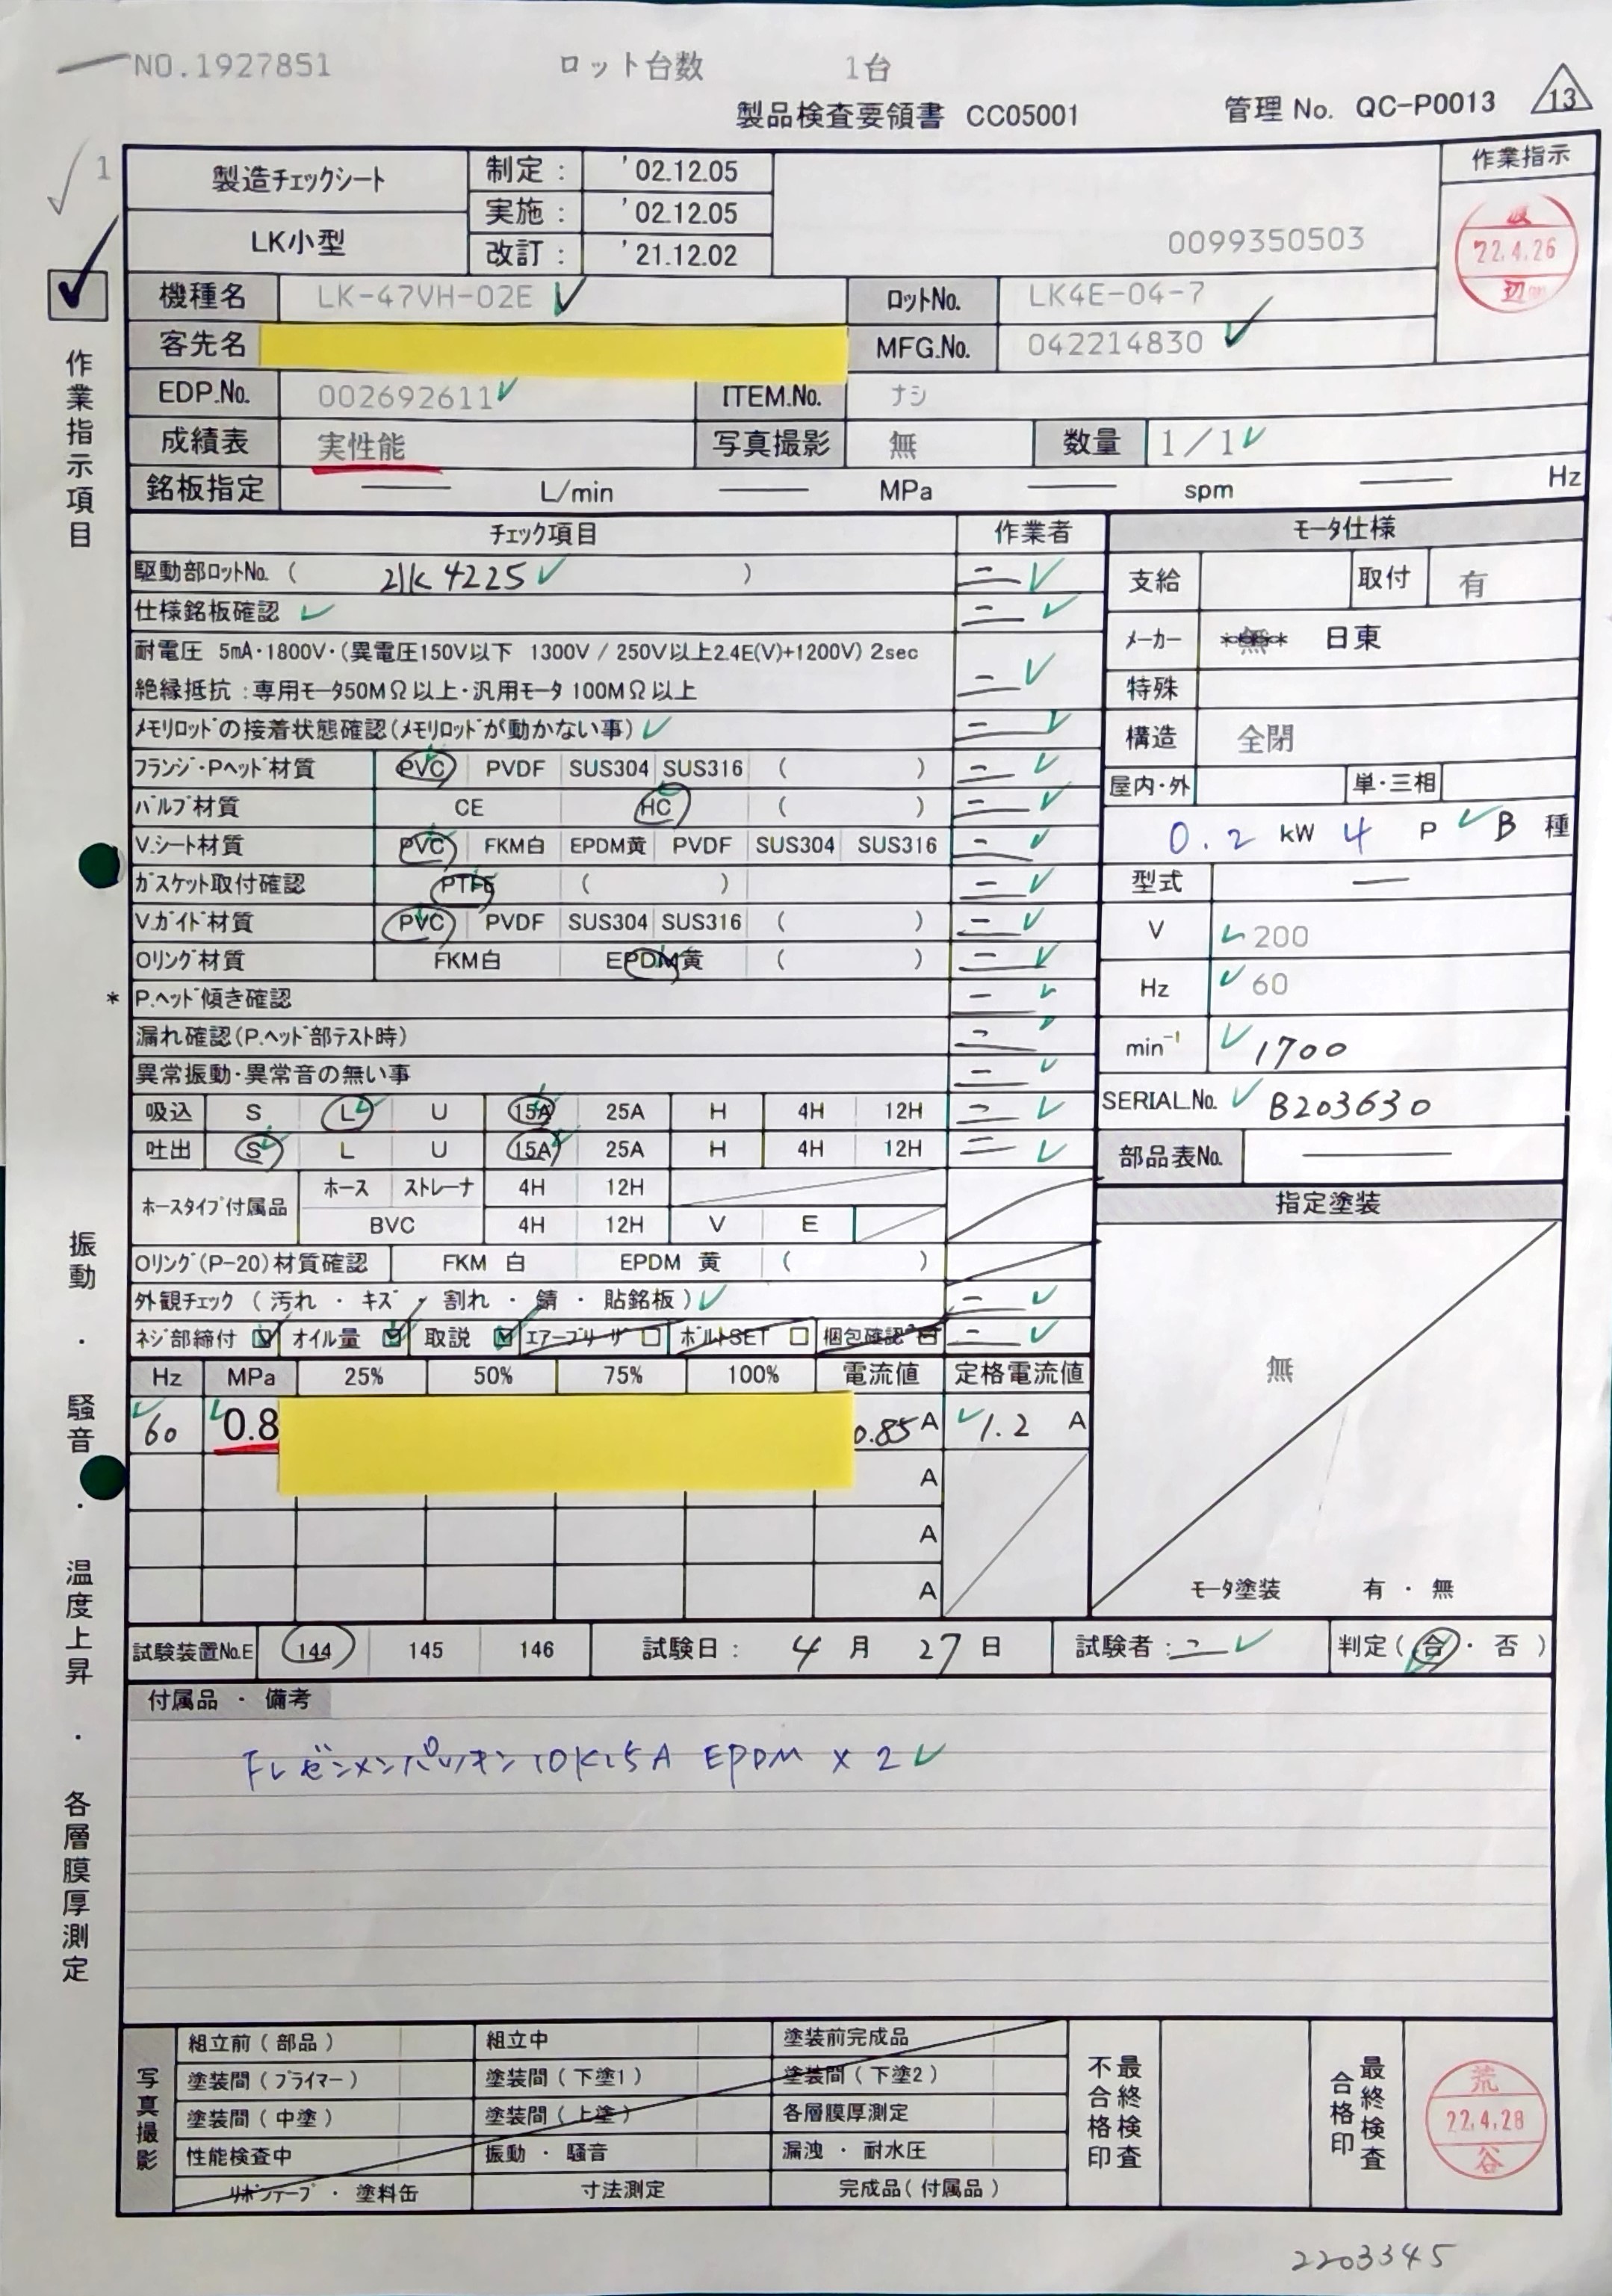 NO.1927851 ロット台数 1台
製品検査要領書 CC05001 管理 No. QC-P0013 13
1
製造チェックシート 制定： '02.12.05 作業指示
実施： '02.12.05
LK小型 改訂： '21.12.02 0099350503
渡 22.4.26 辺
機種名 LK-47VH-02E ロットNo. LK4E-04-7
客先名 MFG.No. 042214830
EDP.No. 002692611 ITEM.No. ナシ
成績表 実性能 写真撮影 無 数量 1/1
銘板指定 L/min MPa spm Hz
作業指示項目
振動・騒音・温度上昇・各層膜厚測定
チェック項目 作業者
駆動部ロットNo. ( 2lk4225 ) 二
仕様銘板確認 二
耐電圧 5mA・1800V・(異電圧150V以下 1300V / 250V以上2.4E(V)+1200V) 2sec
絶縁抵抗：専用モータ50MΩ以上・汎用モータ 100MΩ以上 二
メモリロッドの接着状態確認(メモリロッドが動かない事) 二
フランジ・Pヘッド材質 PVC PVDF SUS304 SUS316 ( ) 二
バルブ材質 CE HC ( ) 二
V.シート材質 PVC FKM白 EPDM黄 PVDF SUS304 SUS316 二
ガスケット取付確認 PTFE ( ) 二
V.ガイド材質 PVC PVDF SUS304 SUS316 ( ) 二
Oリング材質 FKM白 EPDM黄 ( ) 二
* P.ヘッド傾き確認 二
漏れ確認(P.ヘッド部テスト時) 二
異常振動・異常音の無い事 二
吸込 S L U 15A 25A H 4H 12H 二
吐出 S L U 15A 25A H 4H 12H 二
ホースタイプ付属品 ホース ストレーナ 4H 12H
BVC 4H 12H V E
Oリング(P-20)材質確認 FKM 白 EPDM 黄 ( )
外観チェック ( 汚れ ・ キズ ・ 割れ ・ 錆 ・ 貼銘板 ) 二
ネジ部締付 オイル量 取説 エアーブリーザ ボルトSET 梱包確認 二
モータ仕様
支給 取付 有
メーカー *無* 日東
特殊
構造 全閉
屋内・外 単・三相
0.2 kW 4 P B 種
型式
V 200
Hz 60
min⁻¹ 1700
SERIAL.No. B203630
部品表No.
指定塗装
無
モータ塗装 有 ・ 無
Hz MPa 25% 50% 75% 100% 電流値 定格電流値
60 0.8 0.85 A 1.2 A
A
A
A
試験装置No.E 144 145 146 試験日： 4 月 27 日 試験者：二 判定 ( 合 ・ 否 )
付属品 ・ 備考
10K15A EPDM × 2
写真撮影
組立前 ( 部品 ) 組立中 塗装前完成品
塗装間 ( プライマー ) 塗装間 ( 下塗1 ) 塗装間 ( 下塗2 )
塗装間 ( 中塗 ) 塗装間 ( 上塗 ) 各層膜厚測定
性能検査中 振動 ・ 騒音 漏洩 ・ 耐水圧
リボンテープ ・ 塗料缶 寸法測定 完成品 ( 付属品 )
最終検査不合格印
最終検査合格印
荒 22.4.28 谷
2203345